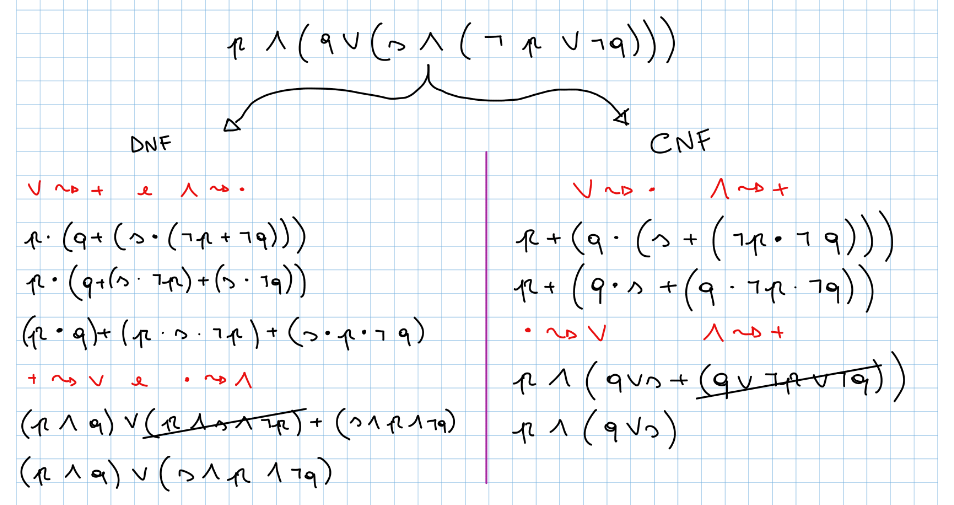 p ∧ (q ∨ (s ∧ (¬ p ∨ ¬q)))
DNF
∨ ⇝ + e ∧ ⇝ ·
p · (q + (s · (¬p + ¬q)))
p · (q + (s · ¬p) + (s · ¬q))
(p · q) + (p · s · ¬p) + (s · p · ¬q)
+ ⇝ ∨ e · ⇝ ∧
(p ∧ q) ∨ (p ∧ s ∧ ¬p) + (s ∧ p ∧ ¬q)
(p ∧ q) ∨ (s ∧ p ∧ ¬q)
CNF
∨ ⇝ · ∧ ⇝ +
p + (q · (s + (¬p · ¬q)))
p + (q · s + (q · ¬p · ¬q))
· ⇝ ∨ ∧ ⇝ +
p ∧ (q ∨ s + (q ∨ ¬p ∨ ¬q))
p ∧ (q ∨ s)